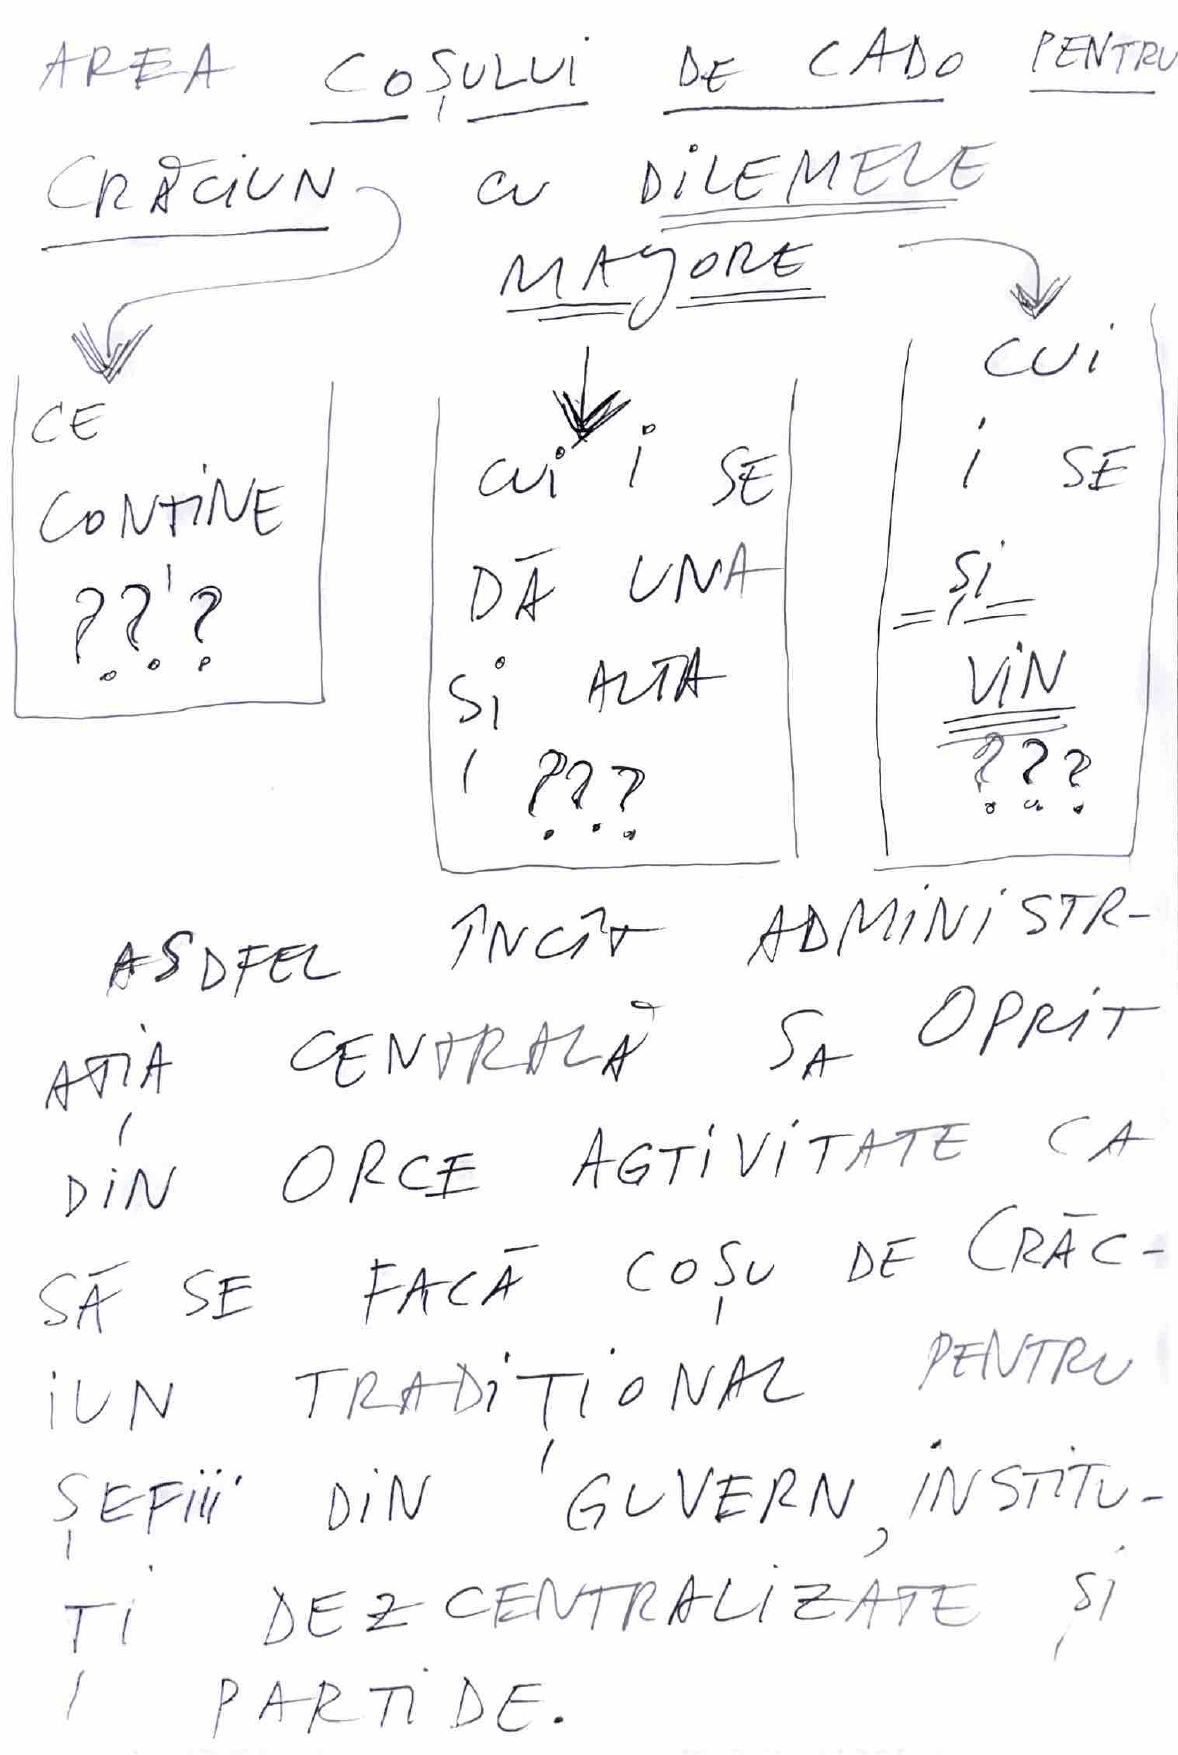 AREA COȘULUI DE CADO PENTRU
CRĂCIUN CU DILEMELE
MAJORE
CE
CONȚINE
???
CUI I SE
DĂ UNA
ȘI ALTA
???
CUI
I SE
ȘI
VIN
???
ASDFEL ÎNCÎT ADMINISTR-
AȚIA CENTRALĂ SA OPRIT
DIN ORCE AGTIVITATE CA
SĂ SE FACĂ COȘU DE CRĂC-
IUN TRADIȚIONAL PENTRU
ȘEFIII DIN GUVERN, INSTITU-
ȚI DEZCENTRALIZATE ȘI
PARTIDE.